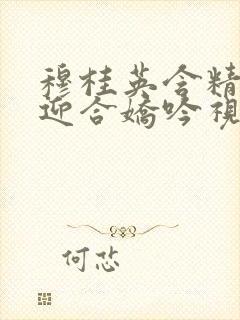 穆桂英含精
迎合嬌吟視
何忿